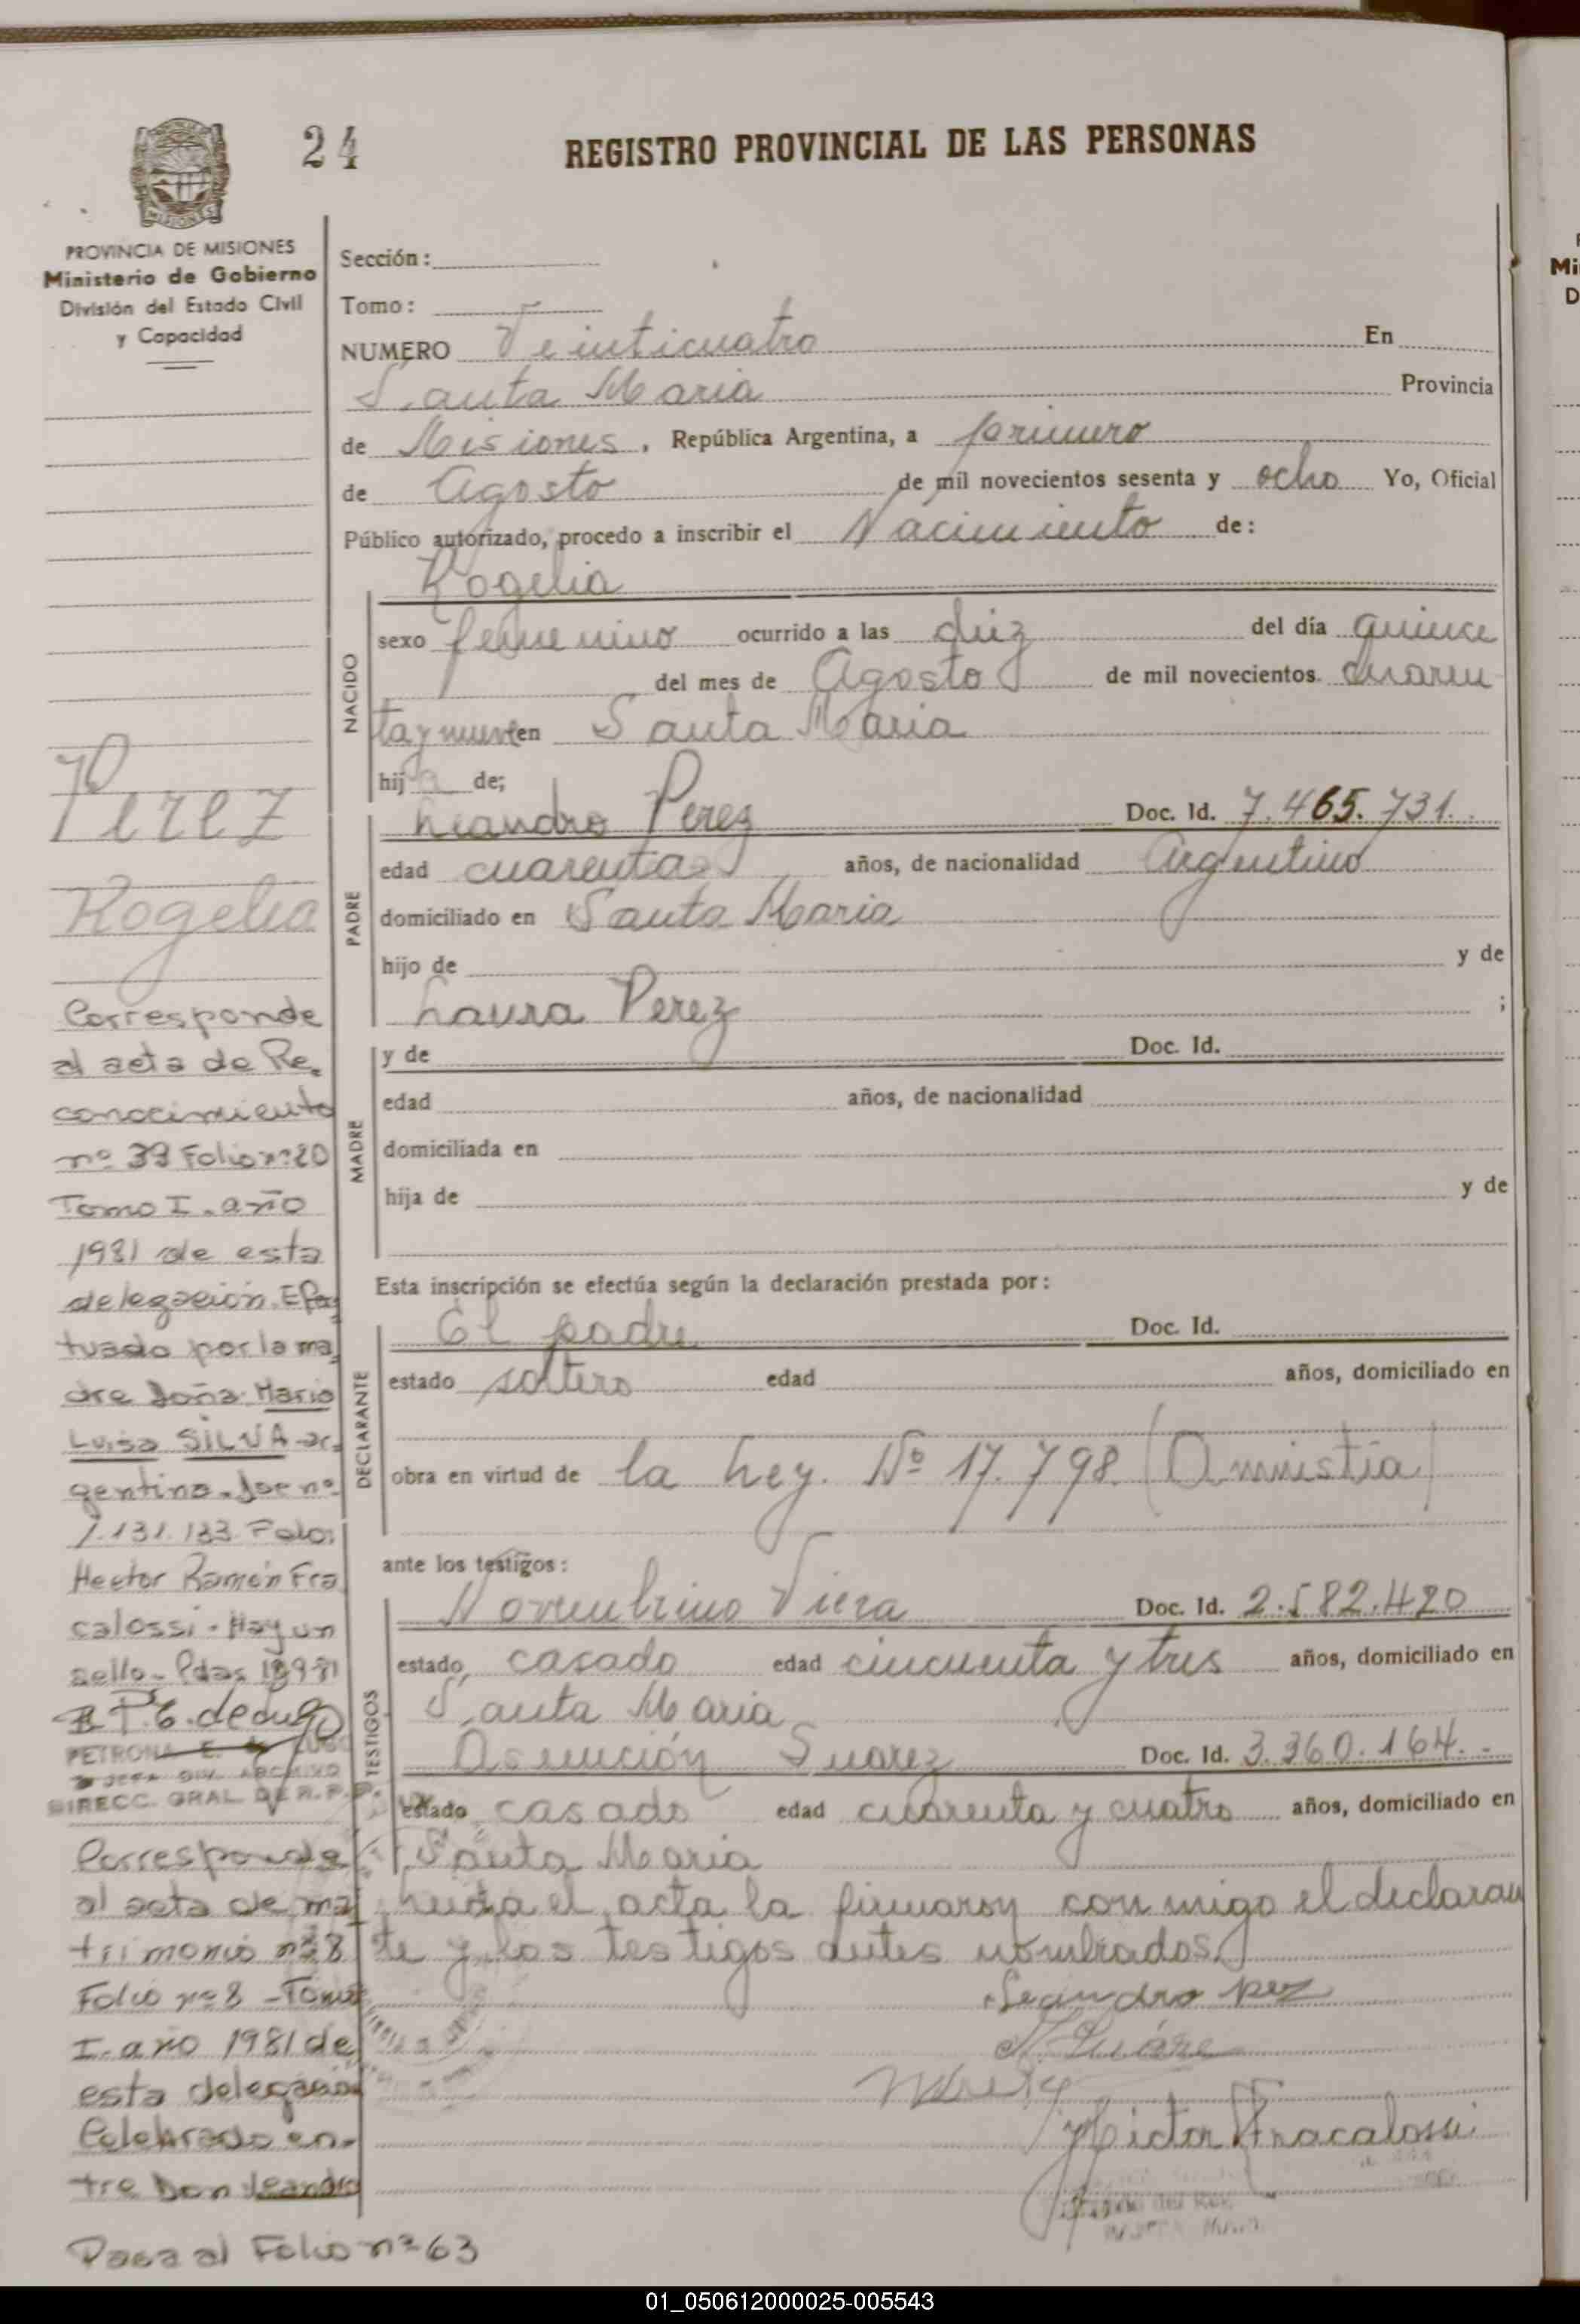 24
REGISTRO PROVINCIAL DE LAS PERSONAS
PROVINCIA DE MISIONES
Ministerio de Gobierno
División del Estado Civil
y Capacidad
Sección:
Tomo:
NUMERO Veinticuatro En
Santa Maria Provincia
de Misiones, República Argentina, a primero
de Agosto de mil novecientos sesenta y ocho Yo, Oficial
Público autorizado, procedo a inscribir el Nacimiento de:
Rogelia
NACIDO
sexo femenino ocurrido a las diez del día quince
del mes de Agosto de mil novecientos cuaren
ta y nueve en Santa Maria
hija de;
PADRE
Leandro Perez Doc. Id. 7.465.731.
edad cuarenta años, de nacionalidad Argentino
domiciliado en Santa Maria
hijo de y de
Laura Perez ;
MADRE
y de Doc. Id.
edad años, de nacionalidad
domiciliada en
hija de y de
Esta inscripción se efectúa según la declaración prestada por:
DECLARANTE
El padre Doc. Id.
estado soltero edad años, domiciliado en
obra en virtud de la Ley. Nº 17.798 (Amnistia)
ante los testigos:
TESTIGOS
Novembrino Viera Doc. Id. 2.582.420
estado casado edad cincuenta y tres años, domiciliado en
Santa Maria
Asunción Suarez Doc. Id. 3.360.164.
estado casado edad cuarenta y cuatro años, domiciliado en
Santa Maria
Leida el acta la firmaron conmigo el declaran
te y los testigos antes nombrados.
Leandro
Hector Fracalossi
Perez
Rogelia
Corresponde
al acta de Re.
conocimiento
nº 39 Folio nº 20
Tomo I. año
1981 de esta
delegación. Efec
tuado por la ma
dre Doña Maria
Luisa SILVA ar.
gentina. Doc nº
1.131.133 Fdo:
Hector Ramón Fra
calossi - Hay un
sello - Pdas
PETRONA E. DE LUGO
JEFA DIV. ARCHIVO
DIRECC. GRAL DE R.P.P.
Corresponde
al acta de ma
trimonio nº 8
Folio nº 8 - Tomo
I. año 1981 de
esta delegación
Celebrado en-
tre Don Leandro
Pasa al Folio nº 63
01_050612000025-005543